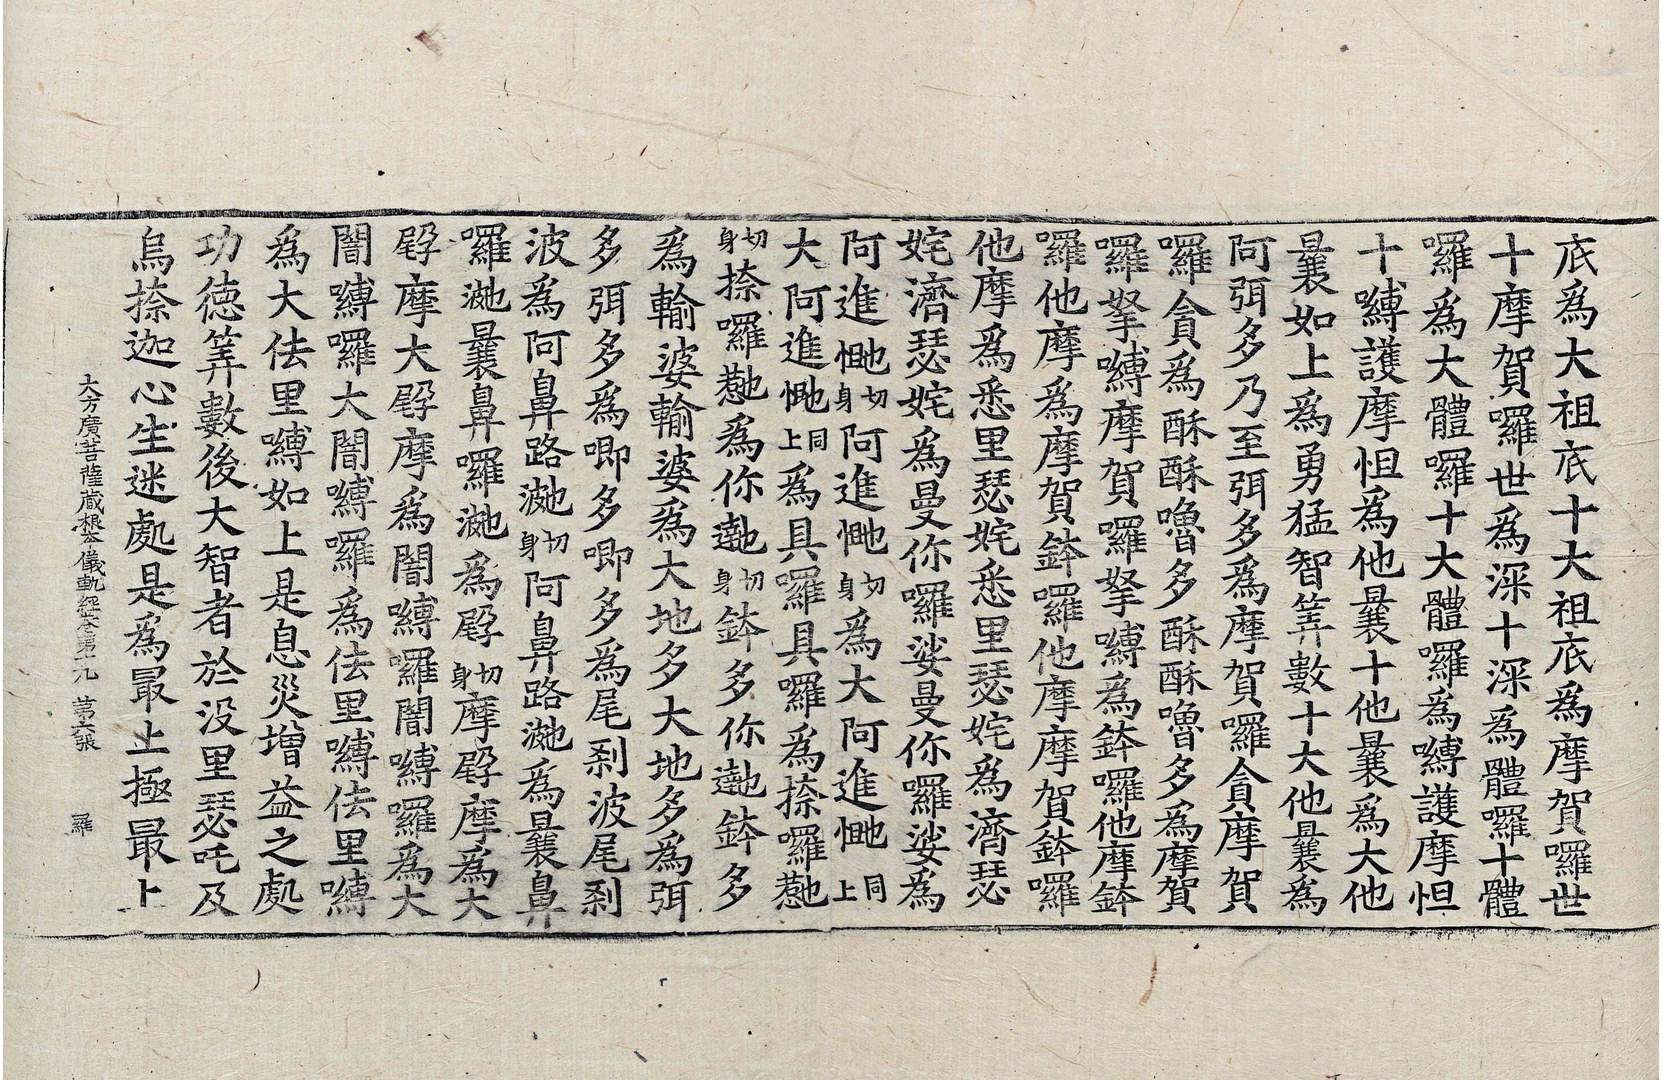 底為大祖底十大祖底為摩賀囉世
十摩賀囉世為深十深為體囉十體
囉為大體囉十大體囉為嚩護摩怛
十嚩護摩怛為他曩十他曩為大他
曩如上為勇猛智筭數十大他曩為
阿弭多乃至弭多為摩賀囉貪摩賀
囉貪為酥酥嚕多酥酥嚕多為摩賀
囉拏嚩摩賀囉拏嚩為鉢囉他摩鉢
囉他摩為摩賀鉢囉他摩摩賀鉢囉
他摩為悉里瑟姹悉里瑟姹為濟瑟
姹濟瑟姹為曼你囉娑曼你囉娑為
阿進𭞕切身阿進𭞕切身為大阿進𭞕同上
大阿進𭞕同上為具囉具囉為捺囉𭞕
切身捺囉𭞕為你𨒛切身鉢多你𨒛鉢多
為輸婆輸婆為大地多大地多為弭
多弭多為唧多唧多為尾剎波尾剎
波為阿鼻路𣽘切身阿鼻路𣽘為曩鼻
囉𣽘曩鼻囉𣽘為㝈切身摩㝈摩為大
㝈摩大㝈摩為闇嚩囉闇嚩囉為大
闇嚩囉大闇嚩囉為佉里嚩佉里嚩
為大佉里嚩如上是息災增益之處
功德筭數後大智者於没里瑟吒及
烏捺迦心生迷處是為最上極最上
大方廣菩薩藏根本儀軌經卷第十九 第六張 羅